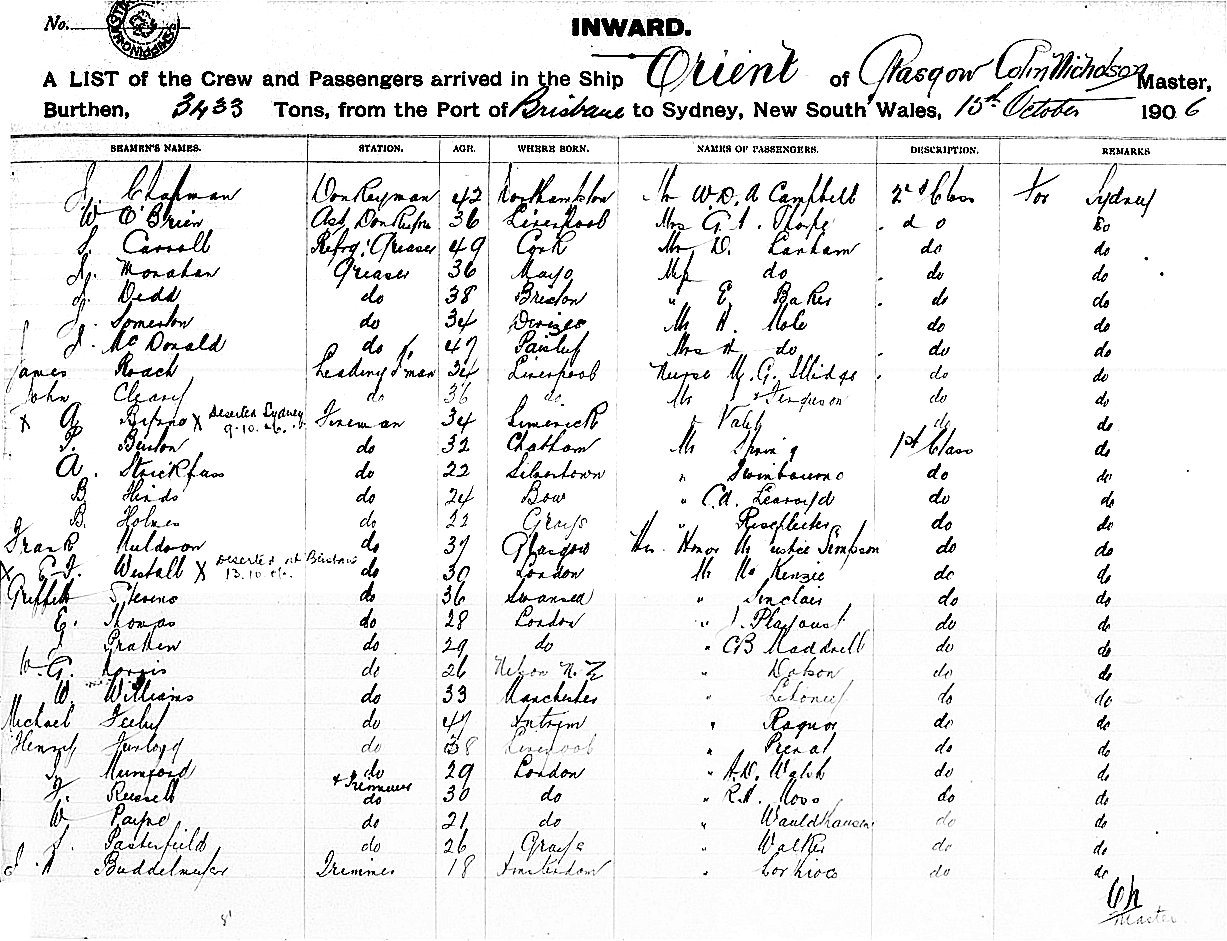 No.
INWARD.
A LIST of the Crew and Passengers arrived in the Ship Orient of Glasgow Colin Nicholson Master,
Burthen, 3433 Tons, from the Port of Brisbane to Sydney, New South Wales, 15th October 1906
SEAMEN'S NAMES. STATION. AGE. WHERE BORN. NAMES OF PASSENGERS. DESCRIPTION. REMARKS
J. Chapman Donkeyman 42 Northampton Mr W.D.A Campbell 2nd Class For Sydney
W O'Brien Ast. 36 Liverpool Mrs G. A. Thorpe do Do
S. Carroll Refrg. Greaser 49 Cork Mr D. Lanham do do
Monahan Greaser 36 Mayo do do do
Dedd do 38 Brixton " E Baker do do
J. Somerton do 34 Devizes Mr H. Mole do do
J. McDonald do 47 Paisley Mrs H do do do
James Roach Leading F'man 34 Liverpool Nurse M. G. Illidge do do
John Cleary do 36 do Mr Ferguson do do
X A X Deserted Sydney 9.10.06. Fireman 34 Limerick do do
P. Benton do 32 Chatham Mr Spring 1st Class do
A. do 22 Silvertown " Swinbourne do do
B Hinds do 24 Bow " do do
B. Holmes do 22 Grays " do do
Frank Muldoon do 37 Glasgow His Honor Mr Justice Simpson do do
X E.J. Westall X Deserted at Brisbane 13.10.06. do 30 London Mr McKenzie do do
Griffith Stevens do 36 Swansea " Sinclair do do
E. Thomas do 28 London " J. Playoust do do
Graham do 29 do " CB Maddrell do do
W.G. Norris do 26 Nelson N.Z " Dotson do do
W. Williams do 33 Manchester " do do
Michael Feeley do 47 Antrim " do do
Henry do 38 Liverpool " do do
J. Mumford do 29 London " A.D. Walsh do do
F. Russell & Trimmer do 30 do " R.A. Moss do do
W Payne do 21 do " do do
J. Pasterfield do 26 Grays " Walker do do
Trimmer 18 Amsterdam " do do
Master